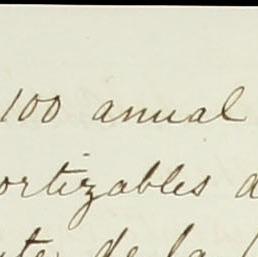 100 anual
ortizables d
te de la